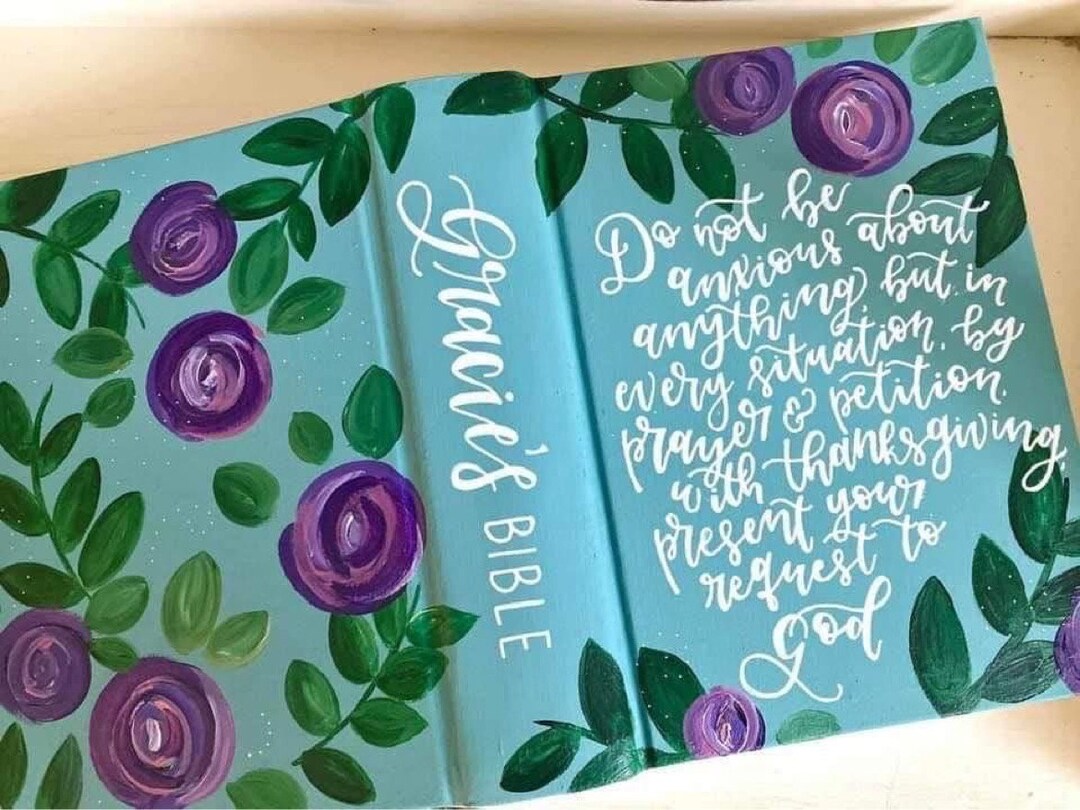 Gracie's BIBLE
Do not be
anxious about
anything, but in
every situation, by
prayer & petition,
with thanksgiving,
present your
request to
God